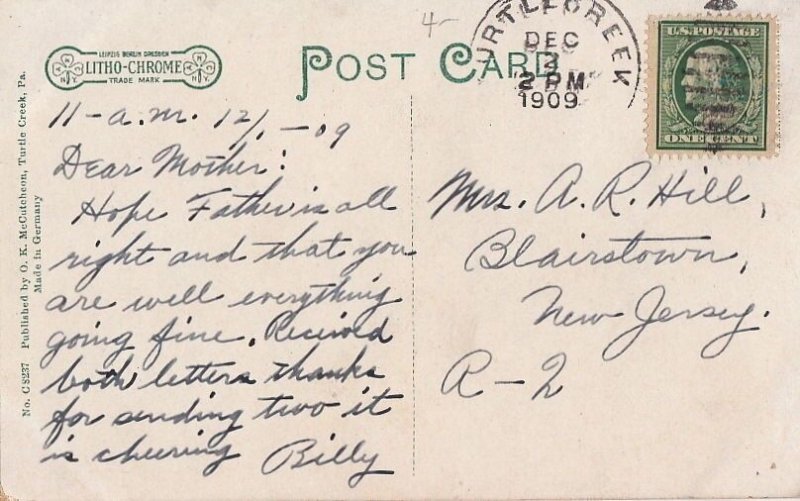 4-
LEIPZIG BERLIN DRESDEN
LITHO-CHROME
TRADE MARK
POST CARD
URTLE CREEK
DEC
2
2 PM
1909
U.S. POSTAGE
ONE CENT
No. C8237 Published by O. K. McCutcheon, Turtle Creek, Pa.
Made in Germany
11-a.m. 12/1-09
Dear Mother:
Hope Father is all
right and that you
are well everything
going fine. Received
both letters thanks
for sending two it
is cheering Billy
Mrs. A. R. Hill,
Blairstown,
New Jersey.
R-2